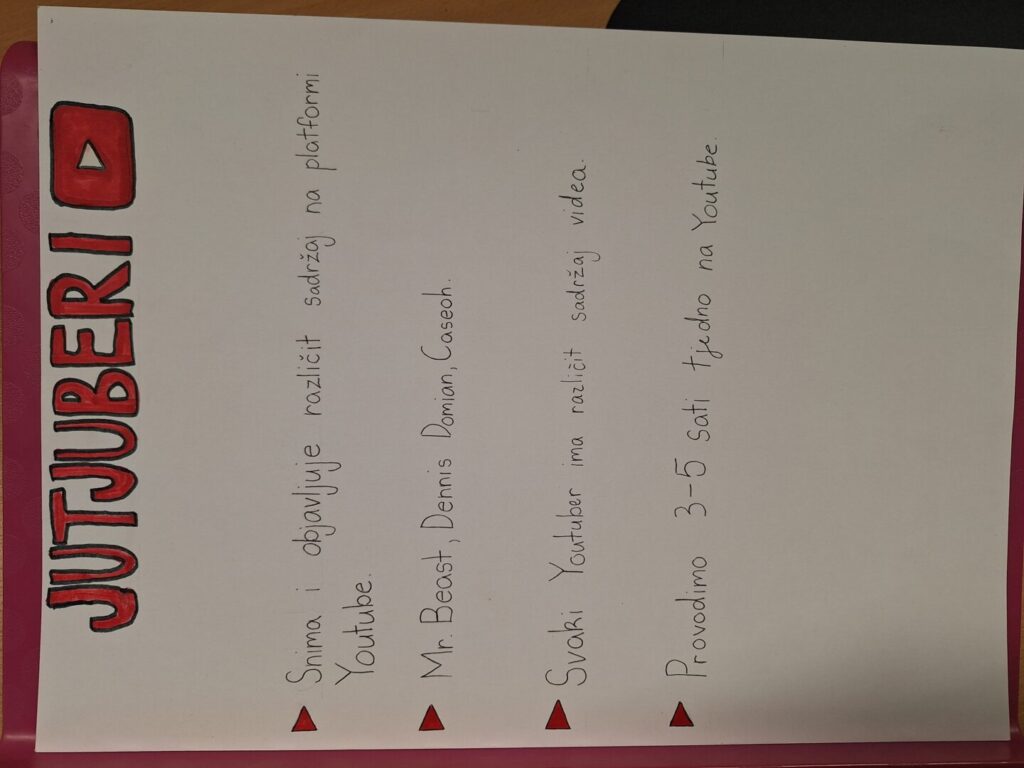 JUTJUBERI
Snima i objavljuje različit sadržaj na platformi
Youtube.
Mr. Beast, Dennis Domian, Caseoh.
Svaki Youtuber ima različit sadržaj videa.
Provodimo 3-5 sati tjedno na Youtube.